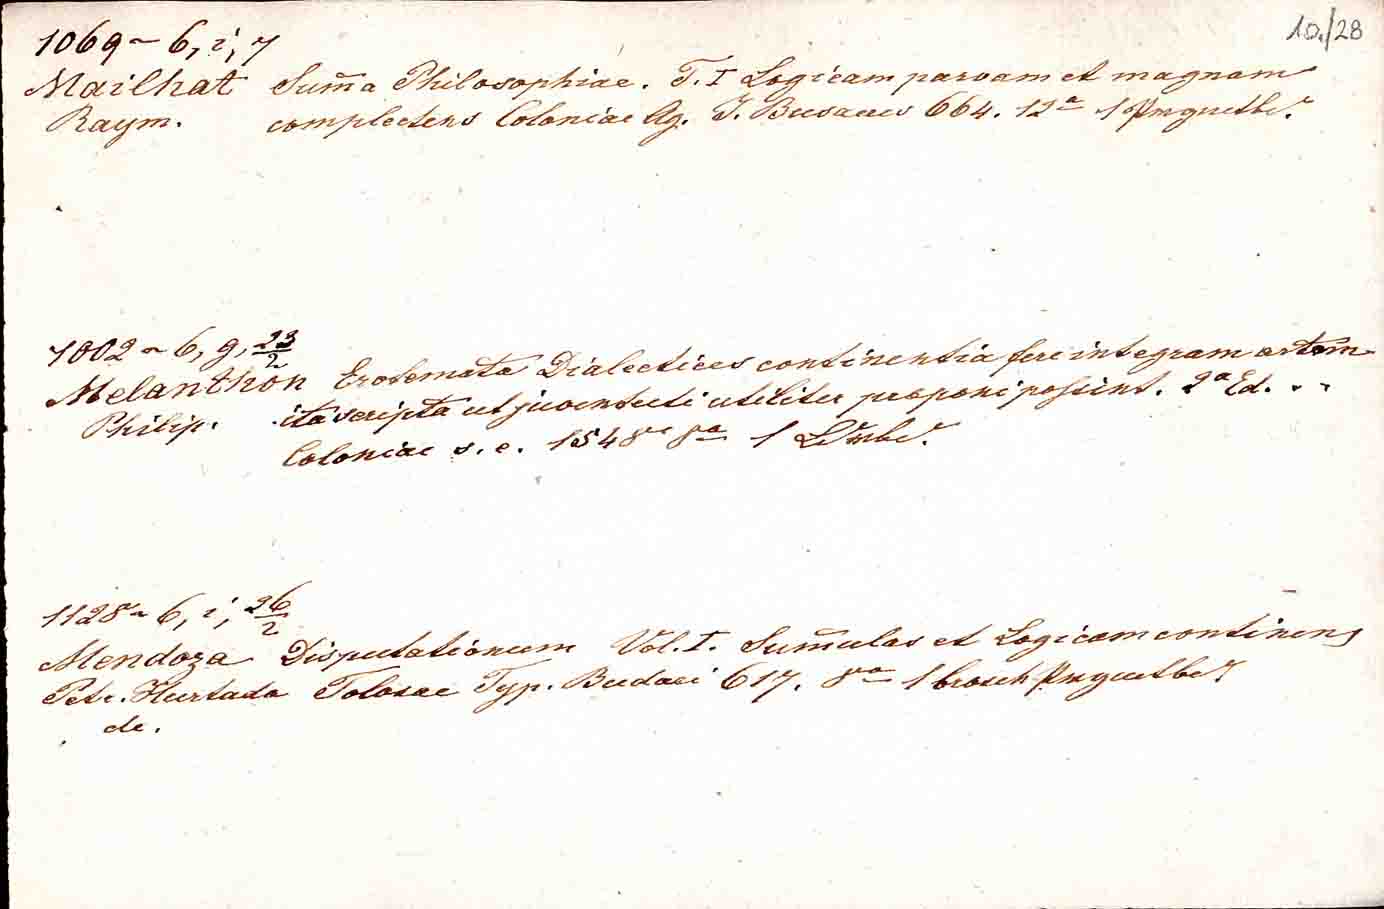 10./28
1069 ~ 6, i, 7
Mailhat Sum̄a Philosophiae. T. I Logicam parvam et magnam
Raym. complectens Coloniae Ag. J. Busaeus 664. 12ª 1
1002 ~ 6, g, 23/2
Melanthon Erotemata Dialectices continentia fere integram artem
Philip. ita scripta ut juventuti utiliter proponi possint. 2ª Ed. . .
Coloniae s. e. 1548 8ª 1
1128 ~ 6, i, 26/2
Mendoza Disputationum Vol. I. Sum̄ulas et Logicam continens
Petr. Hurtado Tolosae Typ. 617. 8ª 1 brosch
de.